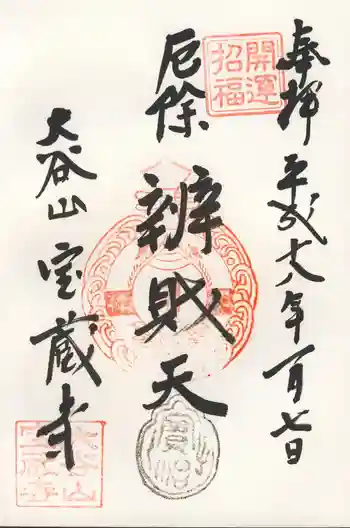 奉拝 平成十八年一月七日
開運
招福
厄除
辨財天
大谷山 宝蔵寺